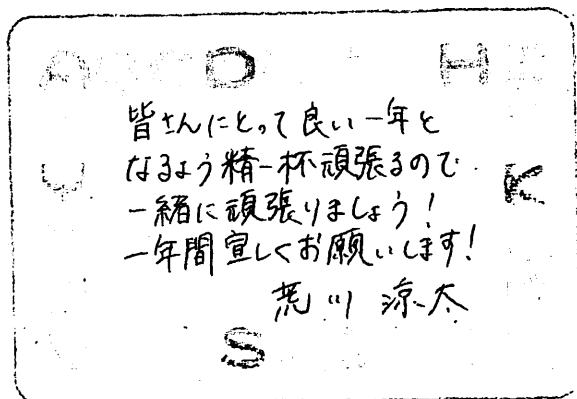 A B C D H
皆さんにとって良い一年と
なるよう精一杯頑張るので
K
一緒に頑張りましょう!
一年間宜しくお願いします!
荒川 涼太
S